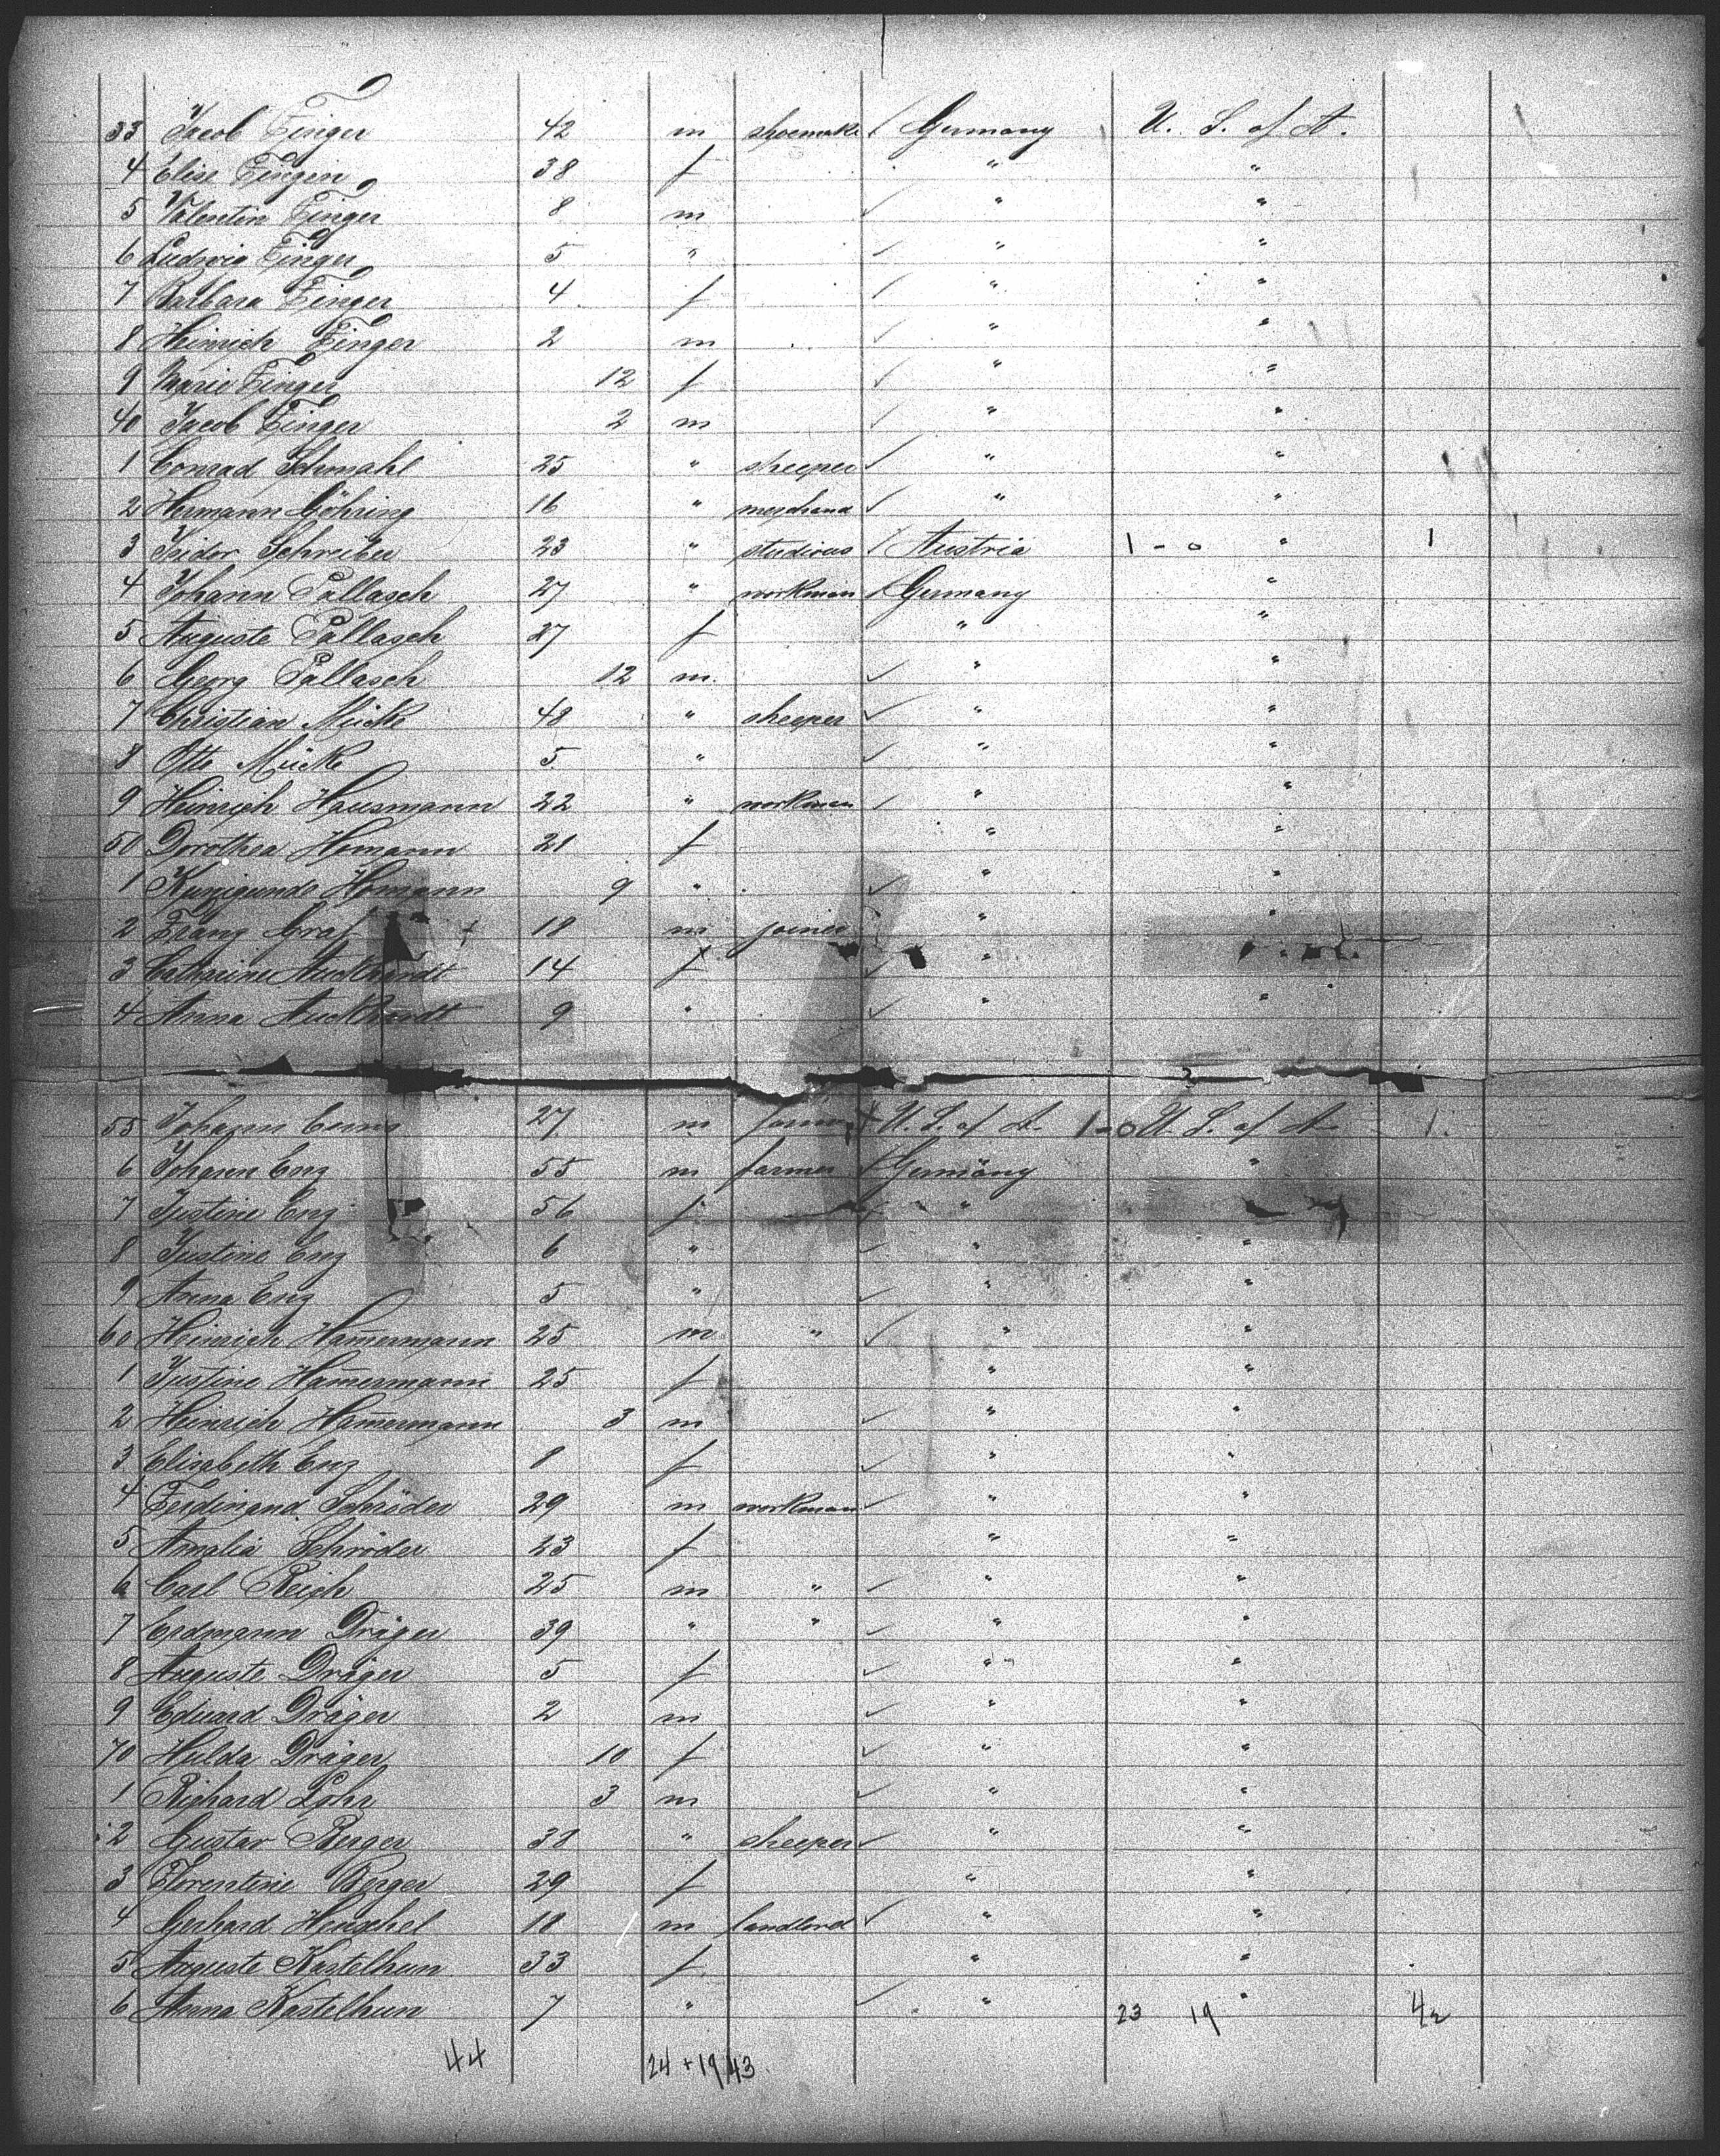 33 Jacob Finger 42 m shoemake Germany U. S. of A.
4 Elise Fingen 38 f " "
5 Valentin Finger 8 m " "
6 Ludwig Finger 5 " " "
7 Barbara Finger 4 f " "
8 Heinrich Finger 2 m " "
9 Marie Finger 12 f " "
40 Jacob Finger 2 m " "
1 Conrad Schmahl 25 " sheeper " "
2 Hermann Göhring 16 " merchand " "
3 Isidor Schreiber 23 " studious Austria 1 - 0 " 1
4 Johann Pallasch 27 " workman Germany "
5 Auguste Pallasch 27 f " "
6 Georg Pallasch 12 m " "
7 Christian Mücke 48 " sheeper " "
8 Otto Mücke 5 " " "
9 Heinrich Hausmann 22 " workman " "
50 Dorothea Homann 21 f " "
1 Kunigunde Homann 9 " " "
2 Franz Graf + 18 m joiner " "
3 Catharine Auckhardt 14 f " "
4 Anna Auckhardt 9 " " "
55 Johann 27 m U. S. of A. 1-0 U. S. of A. 1
6 Johann Enz 55 m farmer Germany "
7 Justine Enz 56 f " "
8 Justine Enz 6 " " "
9 Anna Enz 5 " " "
60 Heinrich Hamermann 25 m " " "
1 Justine Hamermann 25 f " "
2 Heinrich Hamermann 3 m " "
3 Elisabeth Enz 8 f " "
4 Ferdinand Schröder 29 m workman " "
5 Amalia Schröder 23 f " "
6 Carl Reich 25 m " " "
7 Erdmann Dräger 39 " " " "
8 Auguste Dräger 5 f " "
9 Eduard Dräger 2 m " "
70 Hulda Dräger 10 f " "
1 Richard Lohr 3 m " "
2 Gustav Berger 38 " sheeper " "
3 Florentine Berger 29 f " "
4 Gerhard Henschel 18 m landlord " "
5 Auguste Kastelhun 33 f " "
6 Anna Kastelhun 7 " " "
23 19 42
44 24 + 19 43